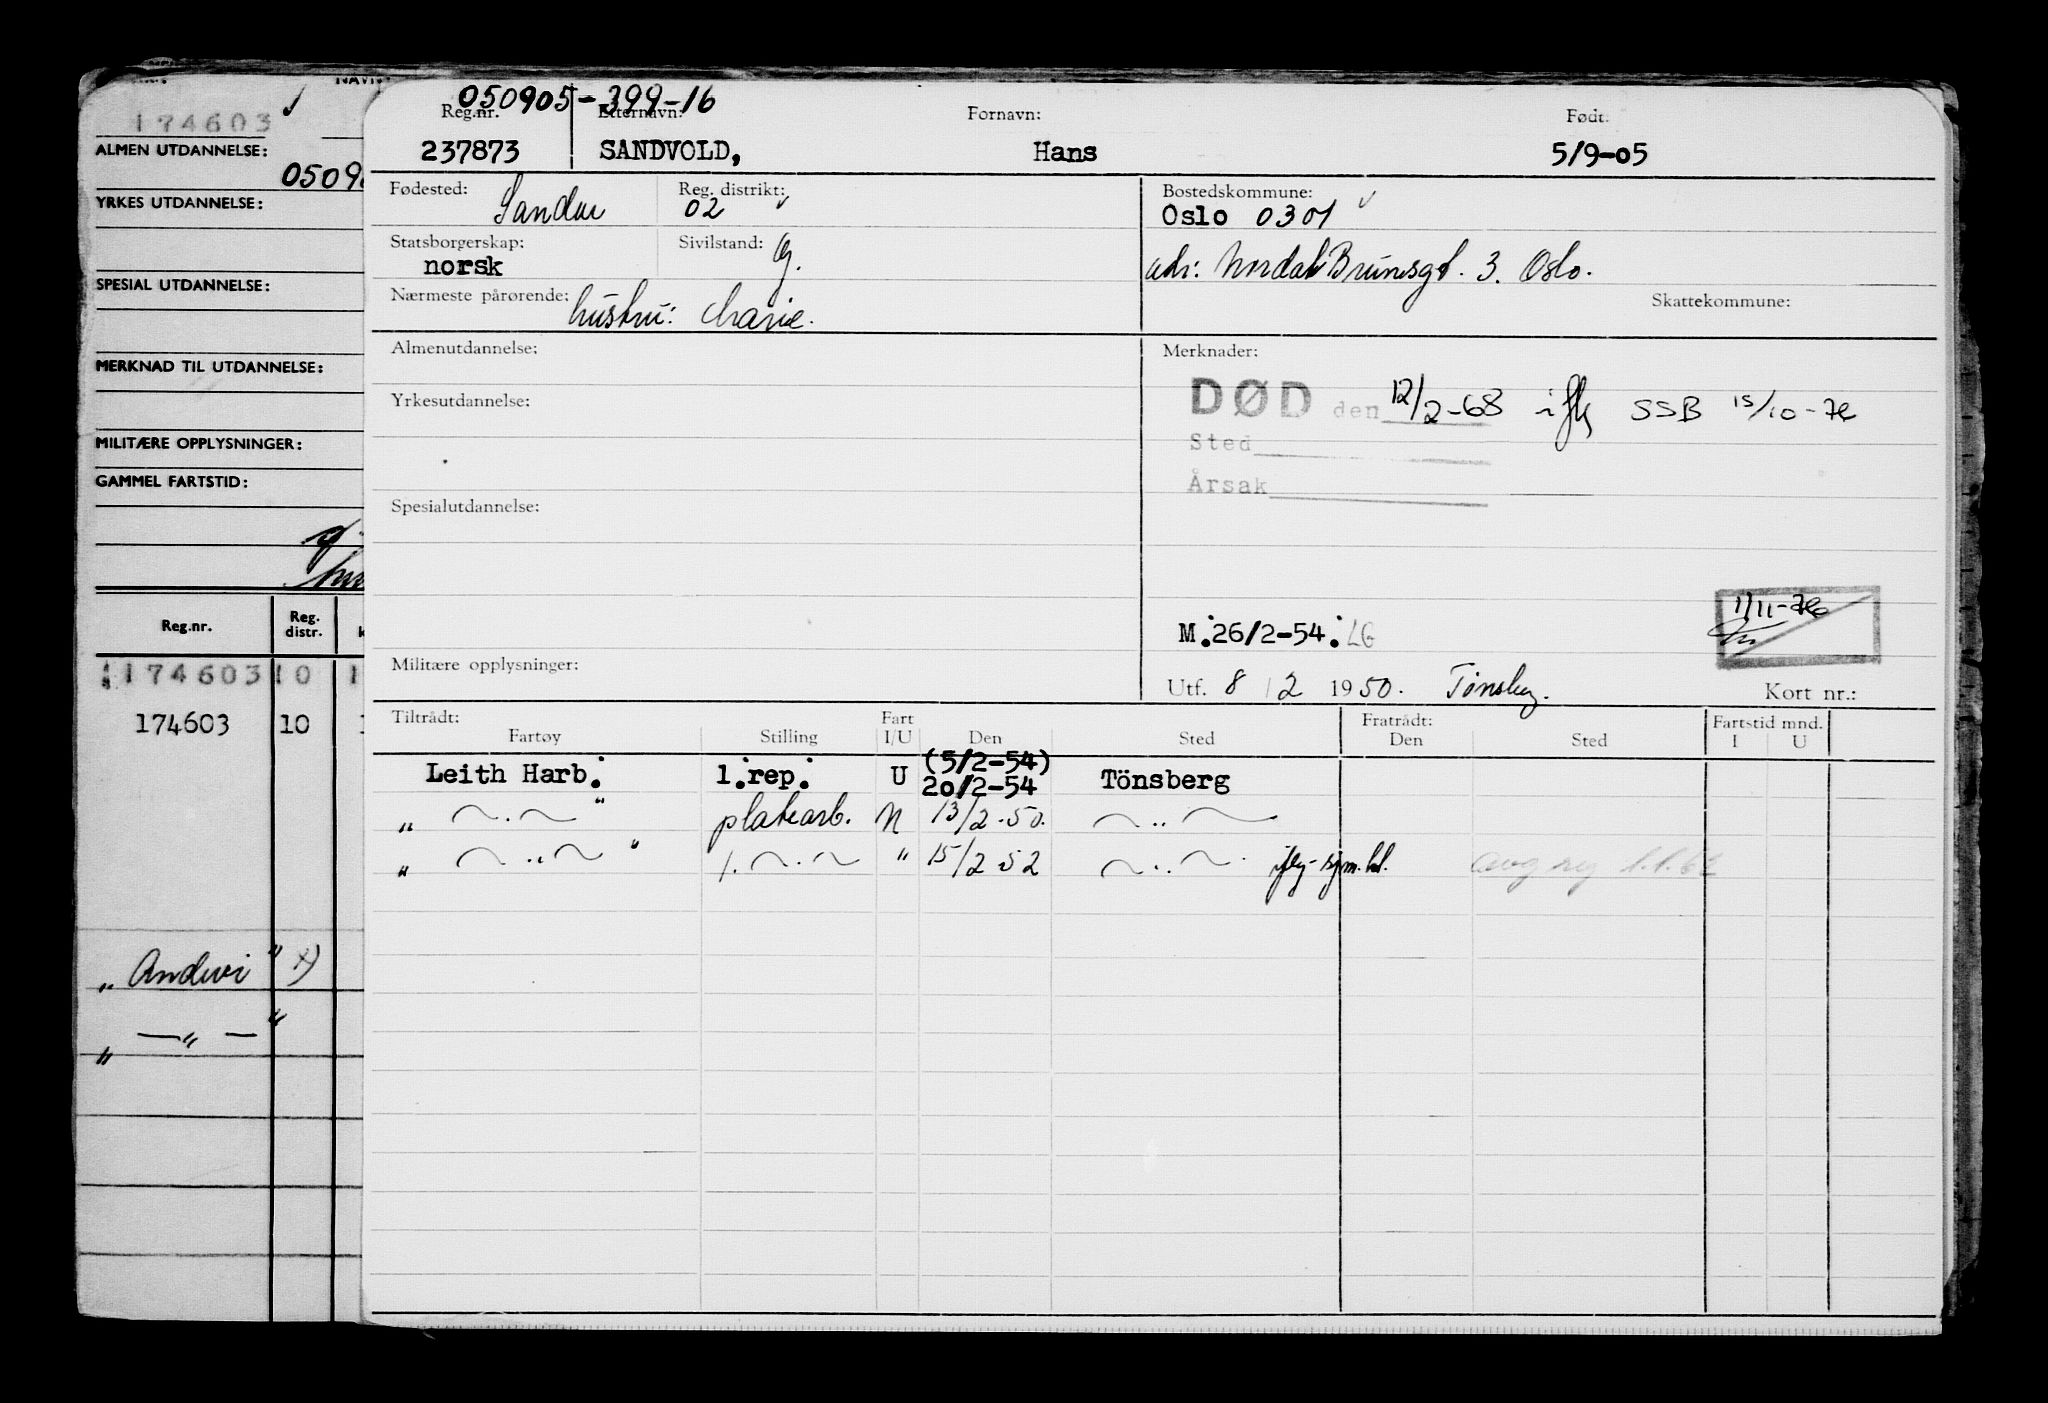 NAVN:
174603
ALMEN UTDANNELSE:
0509
YRKES UTDANNELSE:
SPESIAL UTDANNELSE:
MERKNAD TIL UTDANNELSE:
MILITÆRE OPPLYSNINGER:
GAMMEL FARTSTID:
Reg.nr. Reg. distr.
174603 10 1
174603 10 1
„ Andevi " x)
„ —„— "
050905-399-16
Reg.nr. Etternavn: Fornavn: Født:
237873 SANDVOLD, Hans 5/9-05
Fødested: Sandar Reg. distrikt: 02 Bostedskommune:
Oslo 0301
Statsborgerskap: norsk Sivilstand: g.
adr: Nordal Brunsgt. 3. Oslo.
Nærmeste pårørende: hustru: Marie. Skattekommune:
Almenutdannelse: Merknader:
DØD den 12/2-68 iflg SSB 15/10-76
Yrkesutdannelse:
Sted
Årsak
Spesialutdannelse:
1/11-76
M.:26/2-54.: LG
Militære opplysninger:
Utf. 8/2 1950. Tønsberg. Kort nr.:
Tiltrådt: Fart Fratrådt: Fartstid mnd.
Fartøy Stilling I/U Den Sted Den Sted I U
Leith Harb: 1.rep. U (5/2-54) 20/2-54 Tönsberg
„ —.— " platearb. N 13/2-50. —..—
„ —..— " 1. —..— " 15/2 52 —..—